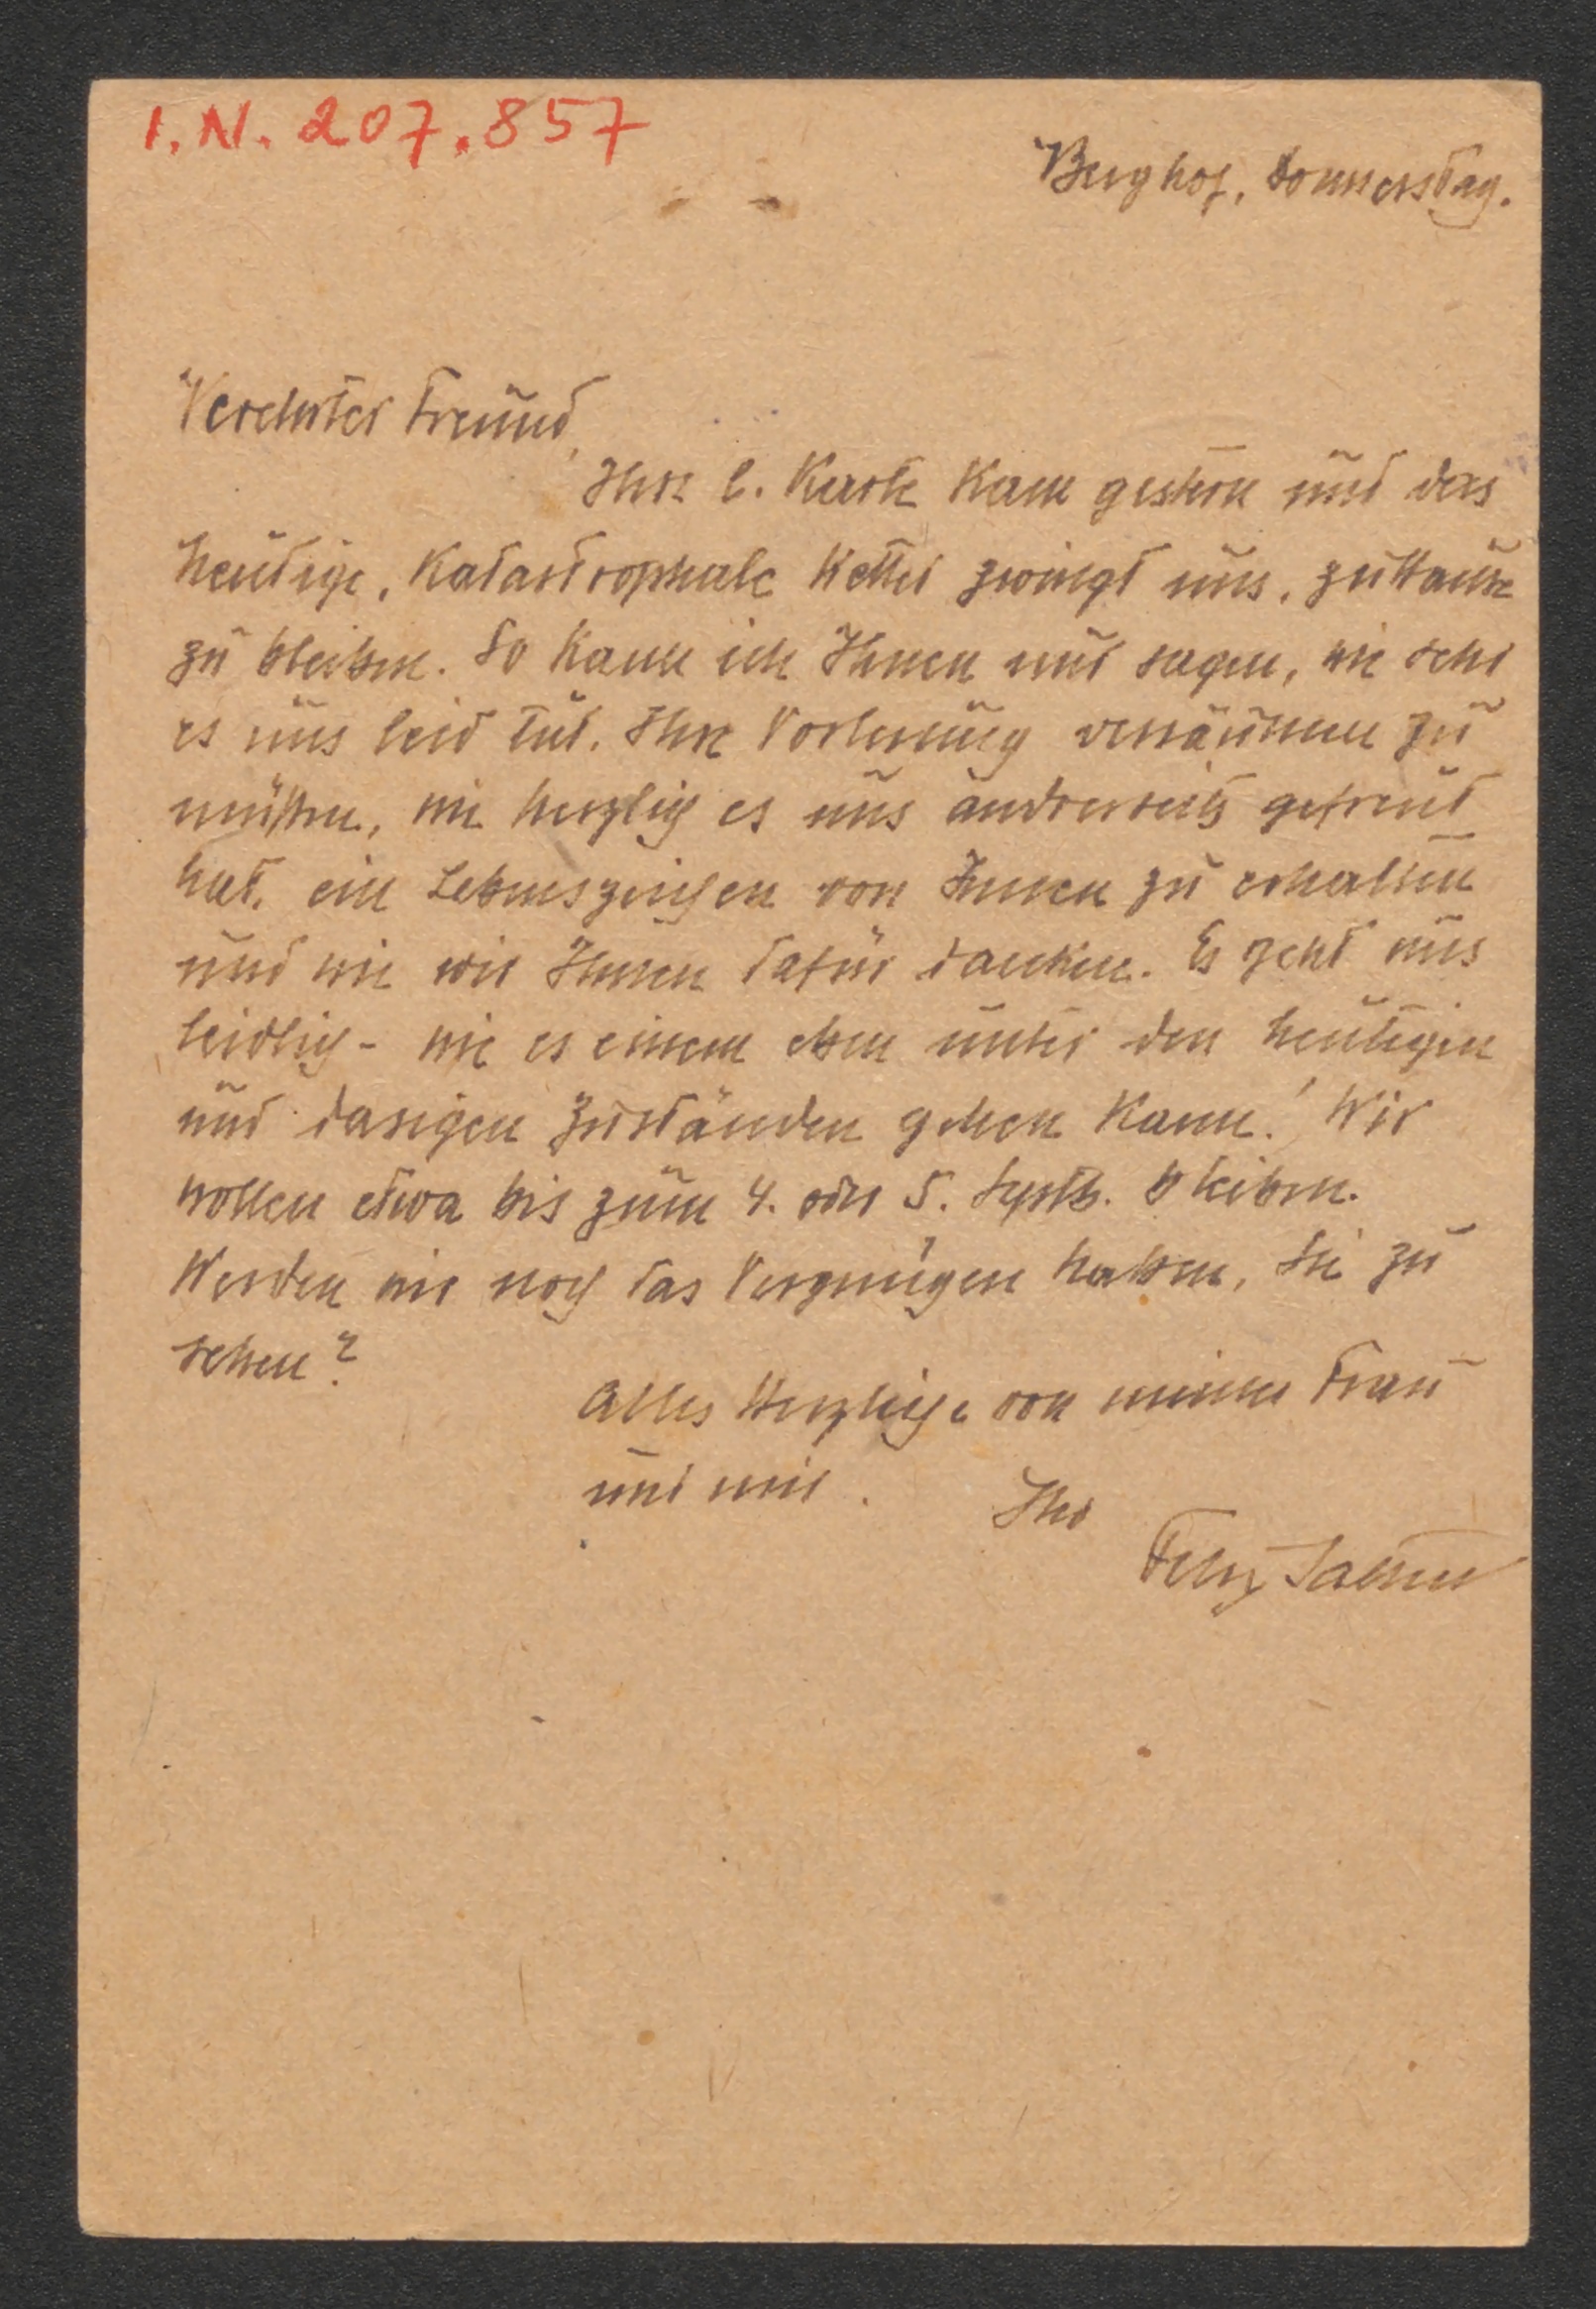 I.N. 207.857
Berghof, Donnerstag.
Verehrter Freund,
Ihre l. Karte kam gestern und das
heutige, katastrophale Wetter zwingt uns, zuhause
zu bleiben. So kann ich Ihnen nur sagen, wie sehr
es uns leid tut, Ihre Vorlesung versäumen zu
müssen, wie herzlich es uns andrerseits gefreut
hat, ein Lebenszeichen von Ihnen zu erhalten
und wie wir Ihnen dafür danken. Es geht uns
leidlich - wie es einem eben unter den heutigen
und dasigen Zuständen gehen kann! Wir
wollen etwa bis zum 4. oder 5. Septb. bleiben.
Werden wir noch das Vergnügen haben, Sie zu
sehen?
Alles Herzliche von meiner Frau
und mir.
Ihr
Felix Salten